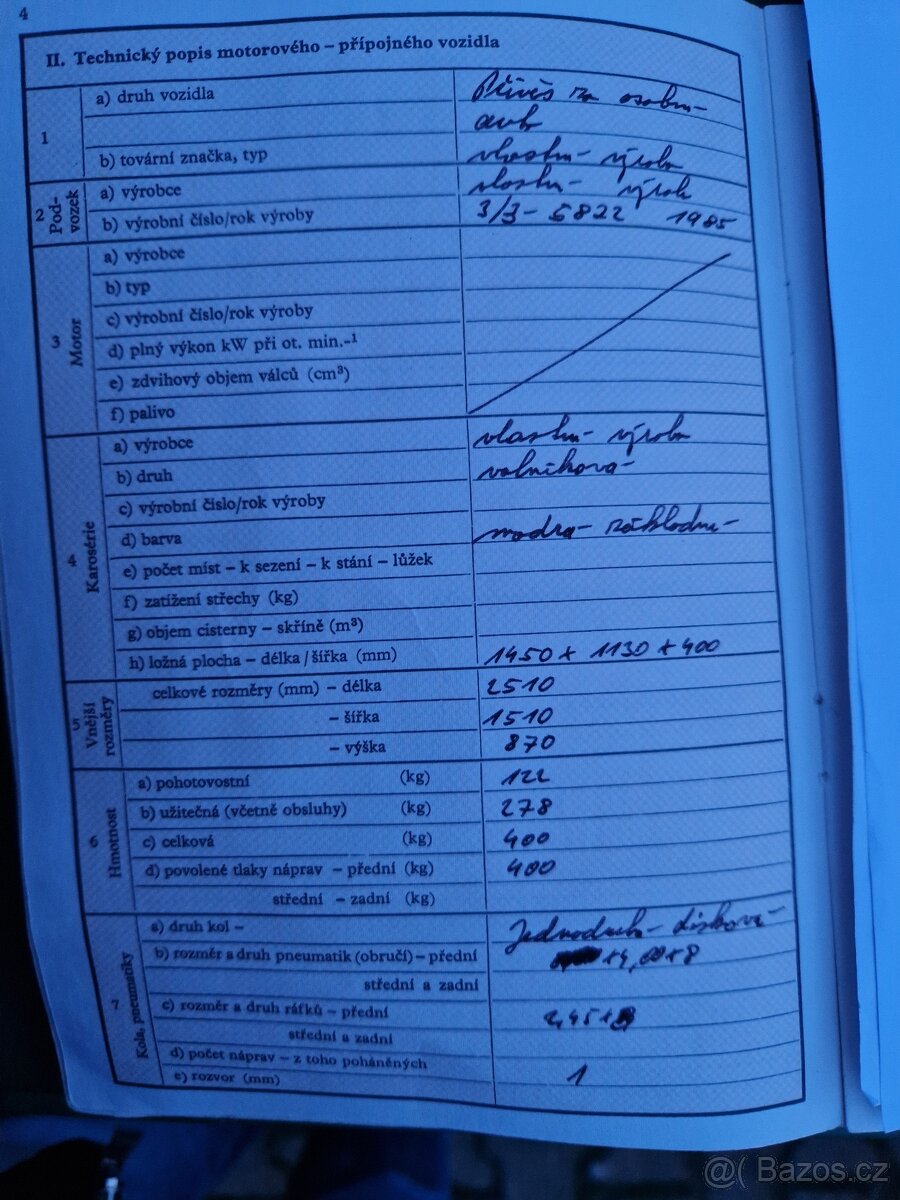 4
II. Technický popis motorového – přípojného vozidla
1
a) druh vozidla Přívěs za osobní
auto
b) tovární značka, typ vlastní výroba
2 Pod-
vozek
a) výrobce vlastní výrob
b) výrobní číslo/rok výroby 3/3-5822 1985
3 Motor
a) výrobce
b) typ
c) výrobní číslo/rok výroby
d) plný výkon kW při ot. min.-¹
e) zdvihový objem válců (cm³)
f) palivo
4 Karosérie
a) výrobce vlastní výroba
b) druh valníková
c) výrobní číslo/rok výroby
d) barva modrá základní
e) počet míst – k sezení – k stání – lůžek
f) zatížení střechy (kg)
g) objem cisterny – skříně (m³)
h) ložná plocha – délka/šířka (mm) 1450 x 1130 x 400
5 Vnější
rozměry
celkové rozměry (mm) – délka 2510
– šířka 1510
– výška 870
6 Hmotnost
a) pohotovostní (kg) 122
b) užitečná (včetně obsluhy) (kg) 278
c) celková (kg) 400
d) povolené tlaky náprav – přední (kg) 400
střední – zadní (kg)
7 Kola, pneumatiky
a) druh kol – Jednoduch disková
b) rozměr a druh pneumatik (obručí) – přední 4,00x8
střední a zadní
c) rozměr a druh ráfků – přední 2,45x8
střední a zadní
d) počet náprav – z toho poháněných 1
e) rozvor (mm)
@( Bazos.cz